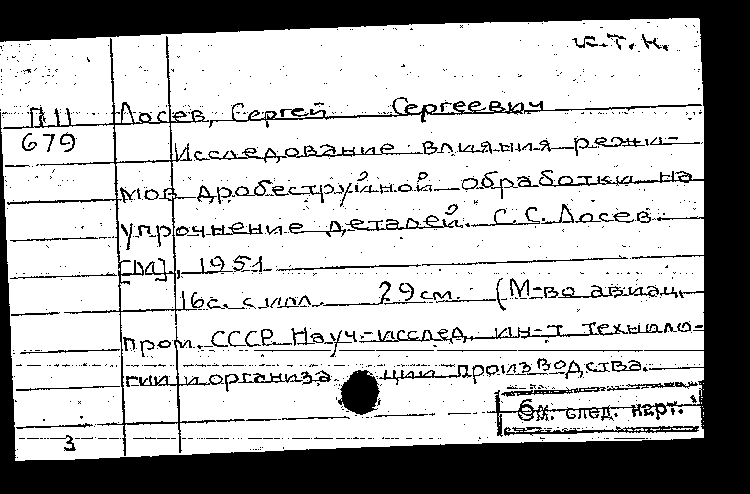 к.т.н.
П11 Лосев, Сергей Сергеевич
679 Исследование влияния режи-
мов дробеструйной обработки на
упрочнение деталей. С.С. Лосев.
[М]., 1951
16с. с илл. 29 см. (М-во авиац.
пром. СССР. Науч.-исслед. ин-т техноло-
гии и организации производства.
См. след. карт.
3